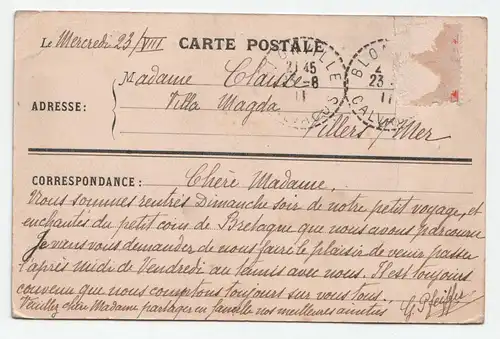 Le Mercredi 23/VIII CARTE POSTALE
Madame Claisse
ADRESSE: Villa Magda
Villers s/Mer
BLO
21 45
23 -8
11
11
CALVADOS
CORRESPONDANCE: Chère Madame,
Nous sommes rentrés Dimanche soir de notre petit voyage, et
enchantés du petit coin de Bretagne que nous avons parcouru
Je vais vous demander de nous faire le plaisir de venir passer
l'après midi de Vendredi au tennis avec nous. Il est toujours
convenu que nous comptons toujours sur vous tous.
Veuillez chère Madame partager en famille nos meilleures amitiés
G Pfeiffer